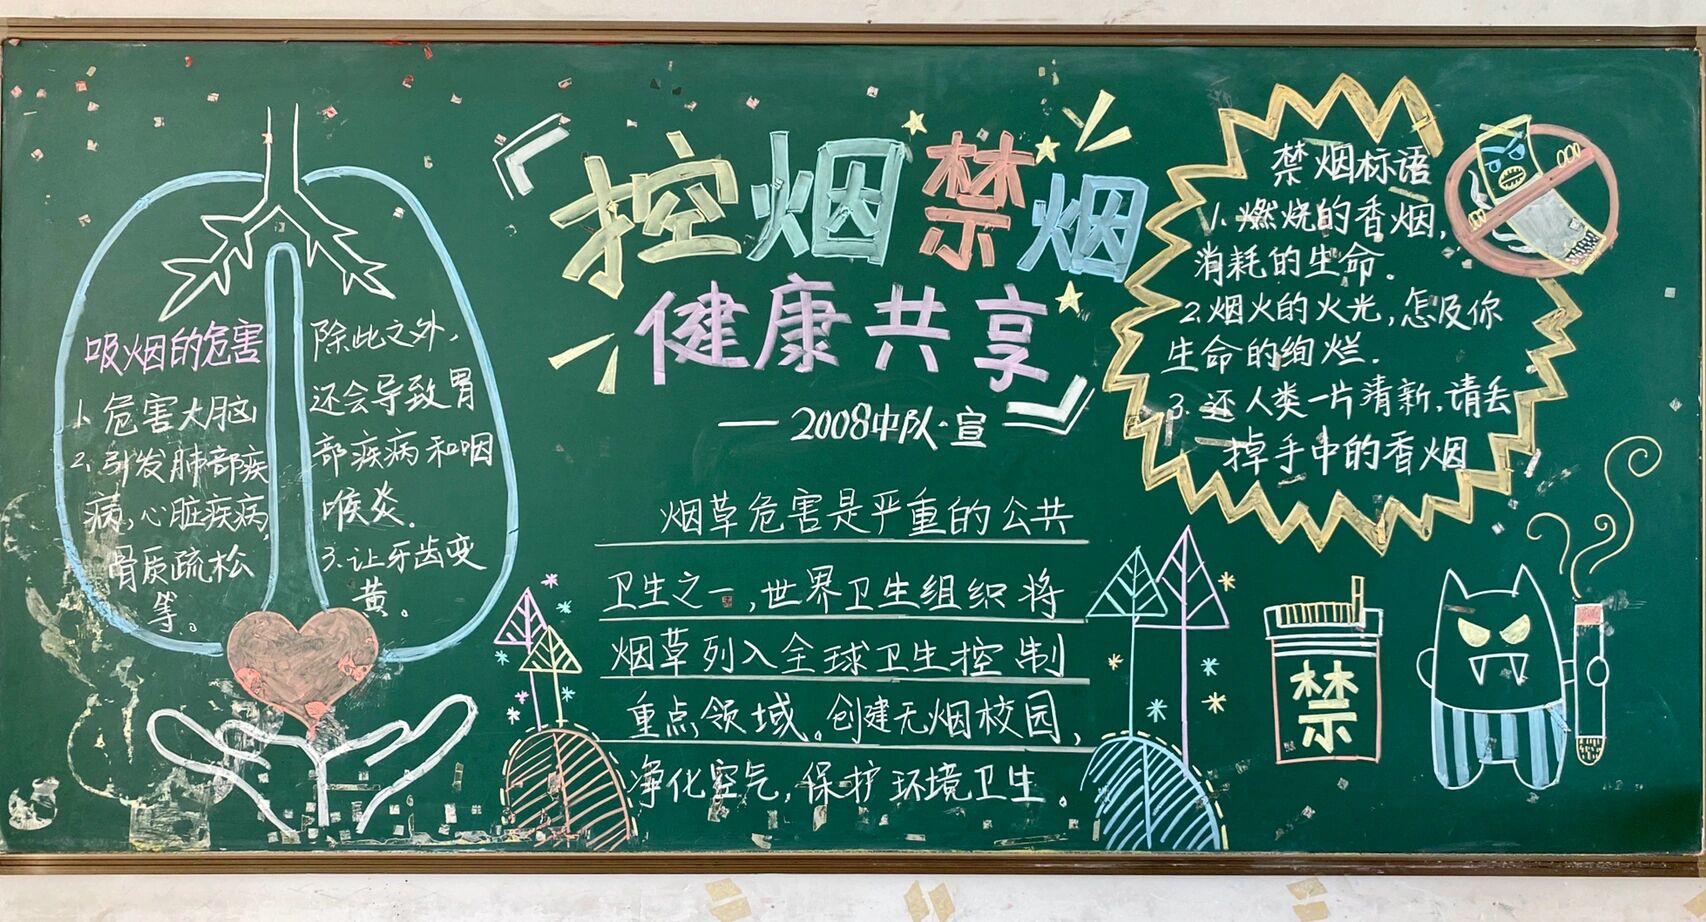 控烟禁烟
健康共享
—2008中队·宣—
吸烟的危害
1、危害大脑
2、引发肺部疾
病，心脏疾病，
骨质疏松
等。
除此之外，
还会导致胃
部疾病和咽
喉炎．
3、让牙齿变
黄。
烟草危害是严重的公共
卫生之一，世界卫生组织将
烟草列入全球卫生控制
重点领域。创建无烟校园，
净化空气，保护环境卫生．
禁烟标语
1、燃烧的香烟，
消耗的生命．
2、烟火的火光，怎及你
生命的绚烂．
3、还人类一片清新，请丢
掉手中的香烟
禁